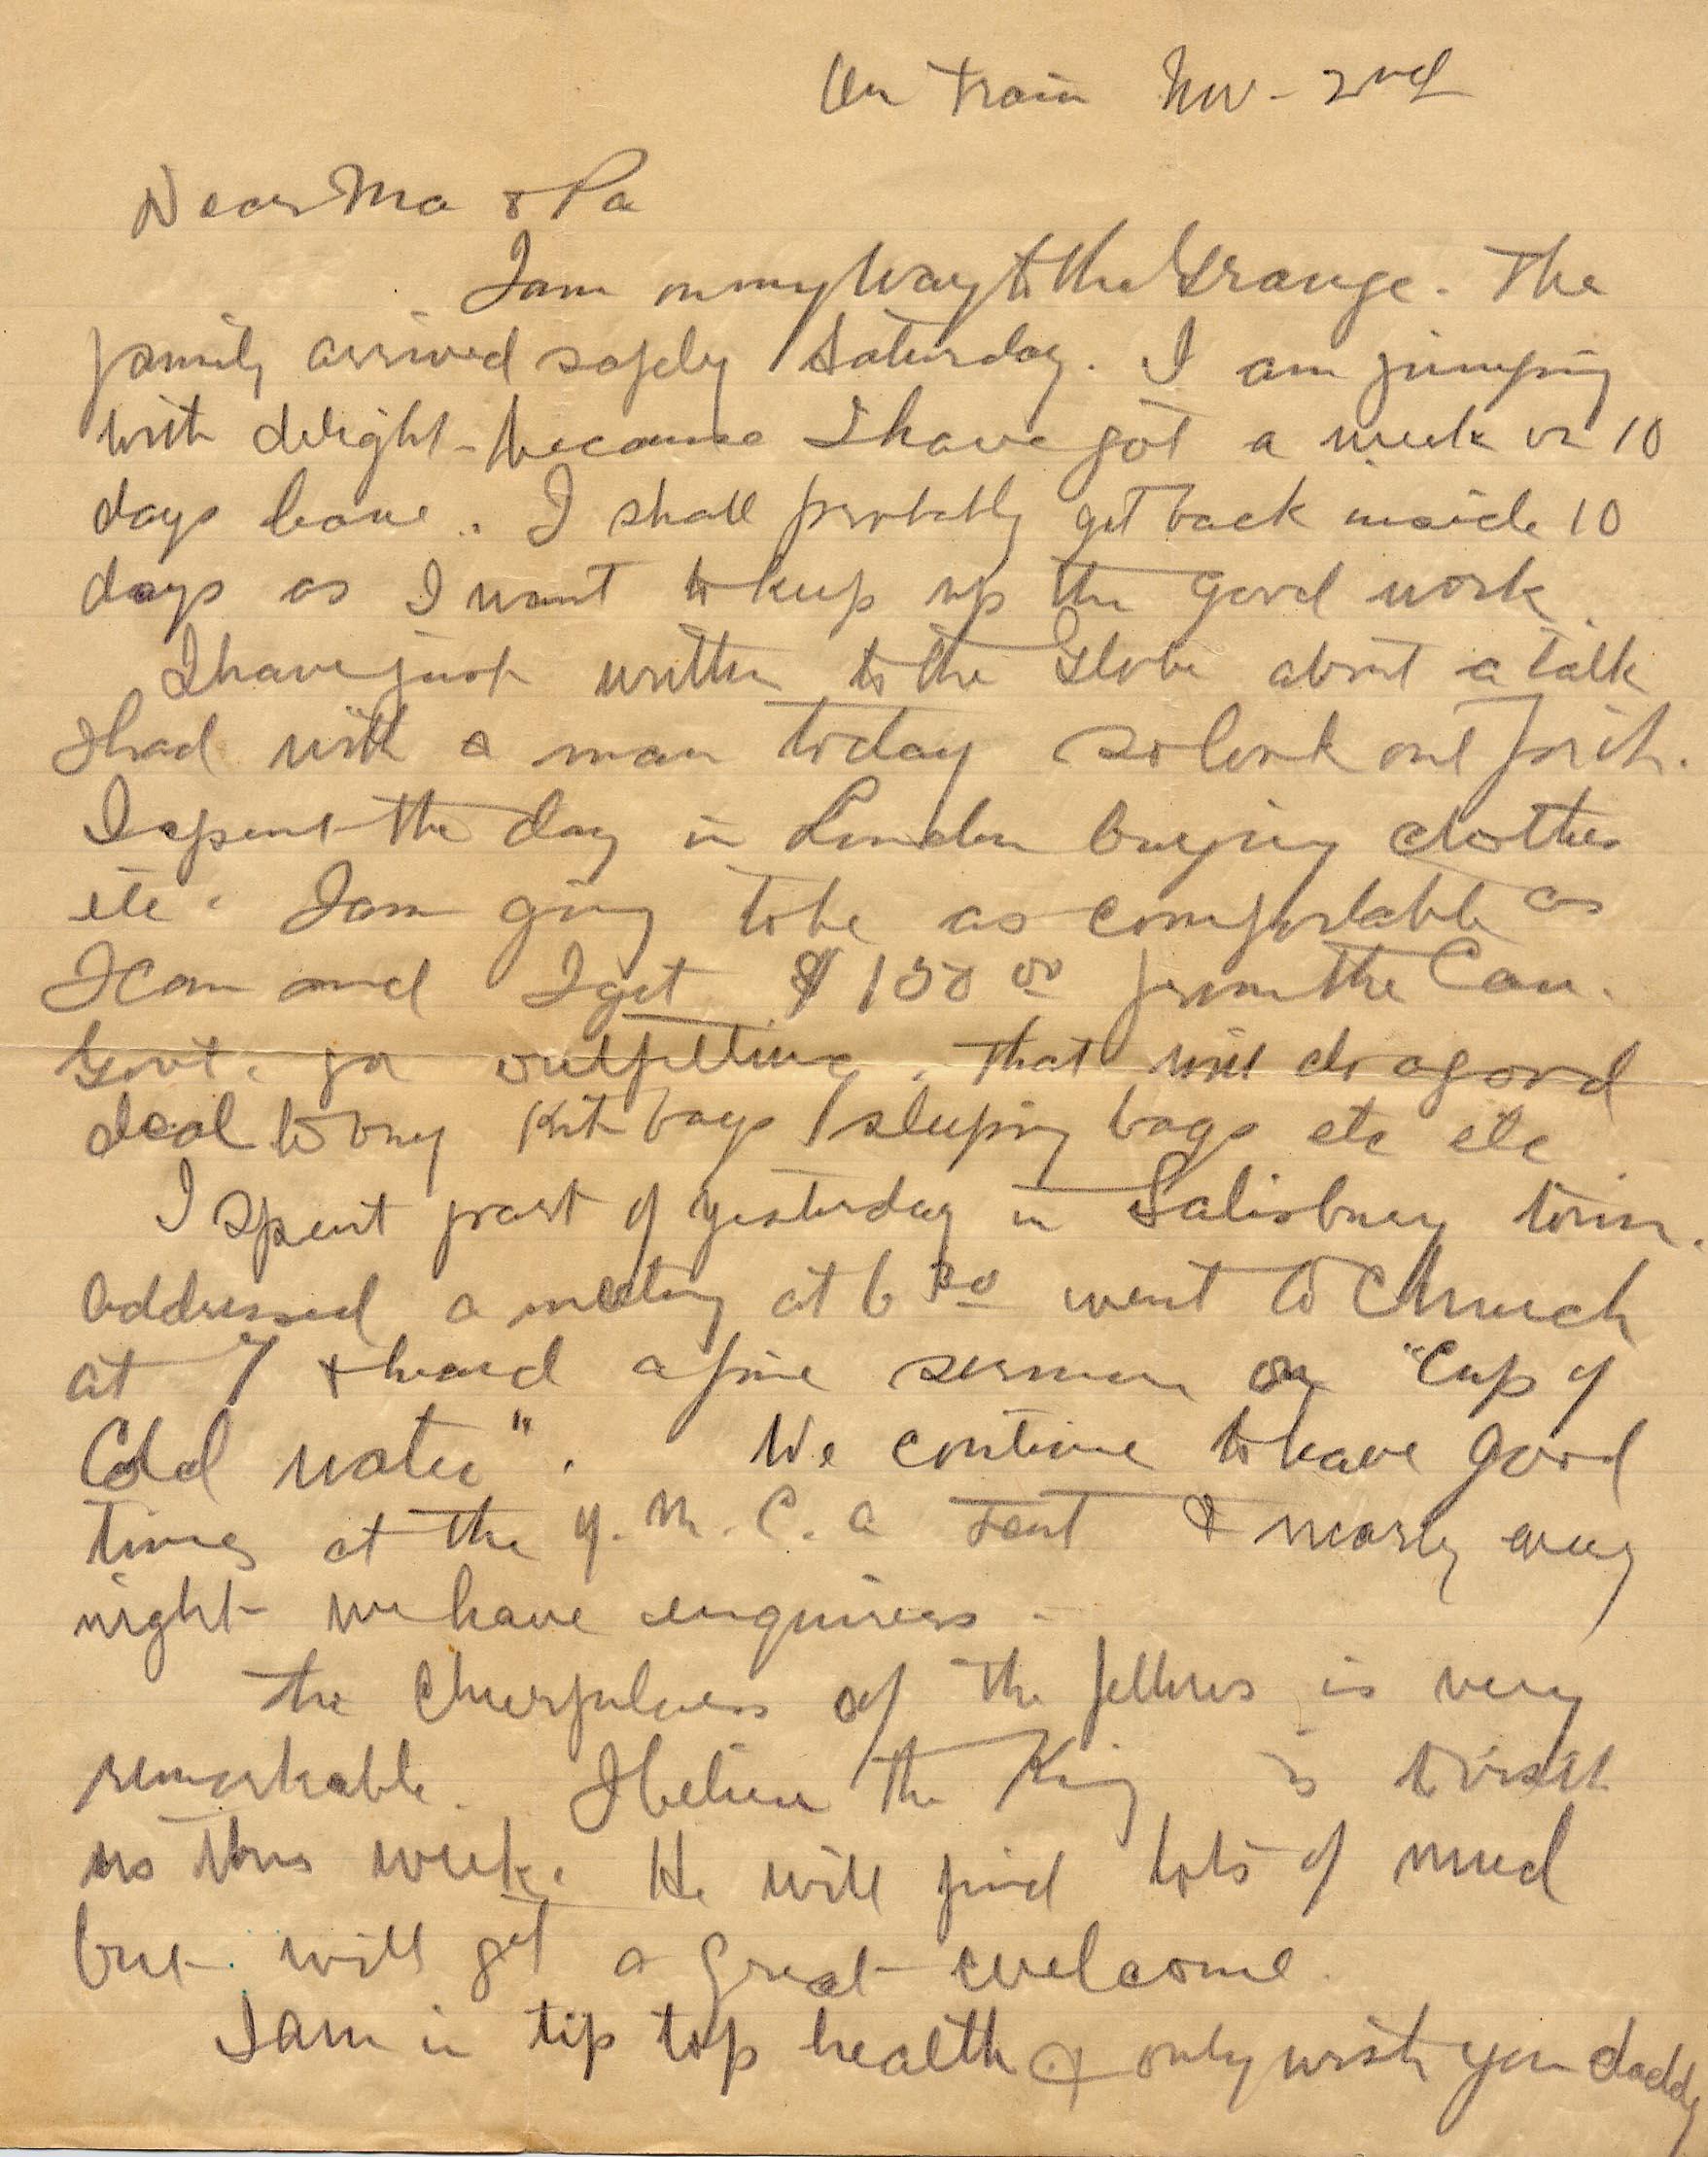 On Train Nov- 2nd
Dear Ma & Pa
I am on my way to the Grange. The
family arrived safely Saturday. I am jumping
with delight - because I have got a week or 10
days leave. I shall probably get back inside 10
days as I want to keep up the good work.
I have just written to the Globe about a talk
I had with a man today so look out for it.
I spent the day in London buying clothes
etc. I am going to be as comfortable as
I can and I get $150 00 from the Can.
Govt. for outfitting. That will do a good
deal to buy Kit bags / sleeping bags etc etc
I spent part of yesterday in Salisbury town.
addressed a meeting at 6 30 went to Church
at 7 & heard a fine sermon on "Cup of
Cold water". We continue to have good
times at the Y. M. C. A Tent & nearly every
night we have enquirers -
The Cheerfulness of the fellows is very
remarkable. I believe the King is to visit
us this week. He will find lots of mud
but will get a great welcome.
I am in tip top health & only wish you daddy